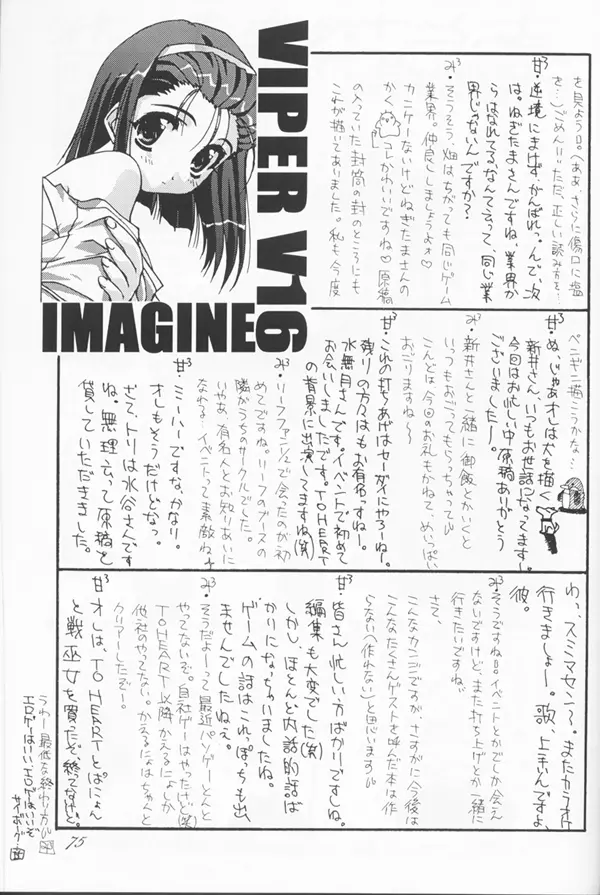 VIPER V16
IMAGINE
を見よう日。(ああ、さらに傷口に塩
を…)ごめん!!ただ、正しい読み方を…
甘³・逆境にまけず、がんばれ、。んで、次
は。ねぎたまさんですね、業界か
らはなれてる、なんて云って、同じ業
界じゃないんですか?
み³・そうそう、畑はちがっても同じゲーム
業界。仲良くしましょうよォ♡
カンケーないけどねぎたまさんの
かく コレかわいいですね♡原稿
の入っていた封筒の封のところにも
これが描いてありました。私も今度
ペンギニ描こうかな…
甘³・ぬ、じゃあオレは犬を描く
新井さん、いつもお世話になってます。
今回はお忙しい中原稿ありがとう
ございましたー。
み³・新井さんと一緒に御飯とかいくと
いつもおごってもらっちゃって
こんどは今回のお礼もかねて、めいっぱい
おごりますね〜
甘³・これの打ちあげはセーダイにやろーね。
残りの方々はもお有名っすねー。
水無月さんです。イベントで初めて
お会いしましたです。TO HEART
の背景に出演してますね(笑)
み³・リーフファンジンで会ったのが初
めてですね。リーフのブースの
隣がうちのサークルでした。
いやあ、有名人とお知りあいに
なれる…イベントって素敵ね。
甘³・ミーハーですな、かなり。
オレもそうだけどなっ。
さて、トリは水谷さんです
ね。無理云って原稿を
貸していただきました。
わ、スミマセン〜。またカラオケ
行きましょー。歌、上手んですよ、
彼。
み³・そうですね日。イベントとかでしか会え
ないですけど、また打ち上げとか一緒に
行きたいですね
さて、
こんなカンジですが、さすがに今後は
こんなたくさんゲストを呼んだ本は作
らない(作れない)と思います
甘³・皆さん忙しい方ばかりですしね。
編集も大変でした(笑)
しかし、ほとんど内話的話ば
かりになってしまいましたね。
ゲームの話はこれっぽっちも出
ませんでしたねえ。
み³・そうだよーって最近パソゲーとんと
やってないぞ。自社ゲーはやったけど(笑)
TO HEART以降かえるにょしか
他社のやってない。かえるにょはちゃんと
クリアーしたぞー。
甘³・オレは、TO HEARTとぱにょん
と戦巫女を買ったぞ、終てないけど。
うわー最低な終わり方
エロゲーはいい、エロゲはいいぞ
サイボーグ
75